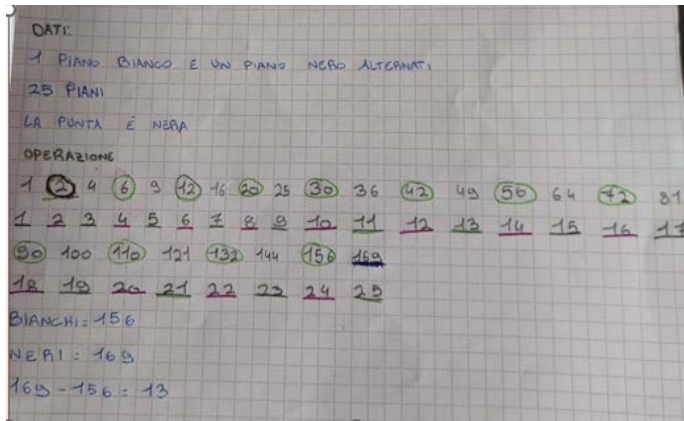 DATI:
1 PIANO BIANCO E UN PIANO NERO ALTERNATI
25 PIANI
LA PUNTA É NERA
OPERAZIONE
1 2 4 6 9 12 16 20 25 30 36 42 49 56 64 72 81
1 2 3 4 5 6 7 8 9 10 11 12 13 14 15 16 17
90 100 110 121 132 144 156 169
18 19 20 21 22 23 24 25
BIANCHI = 156
NERI : 169
169 - 156 = 13